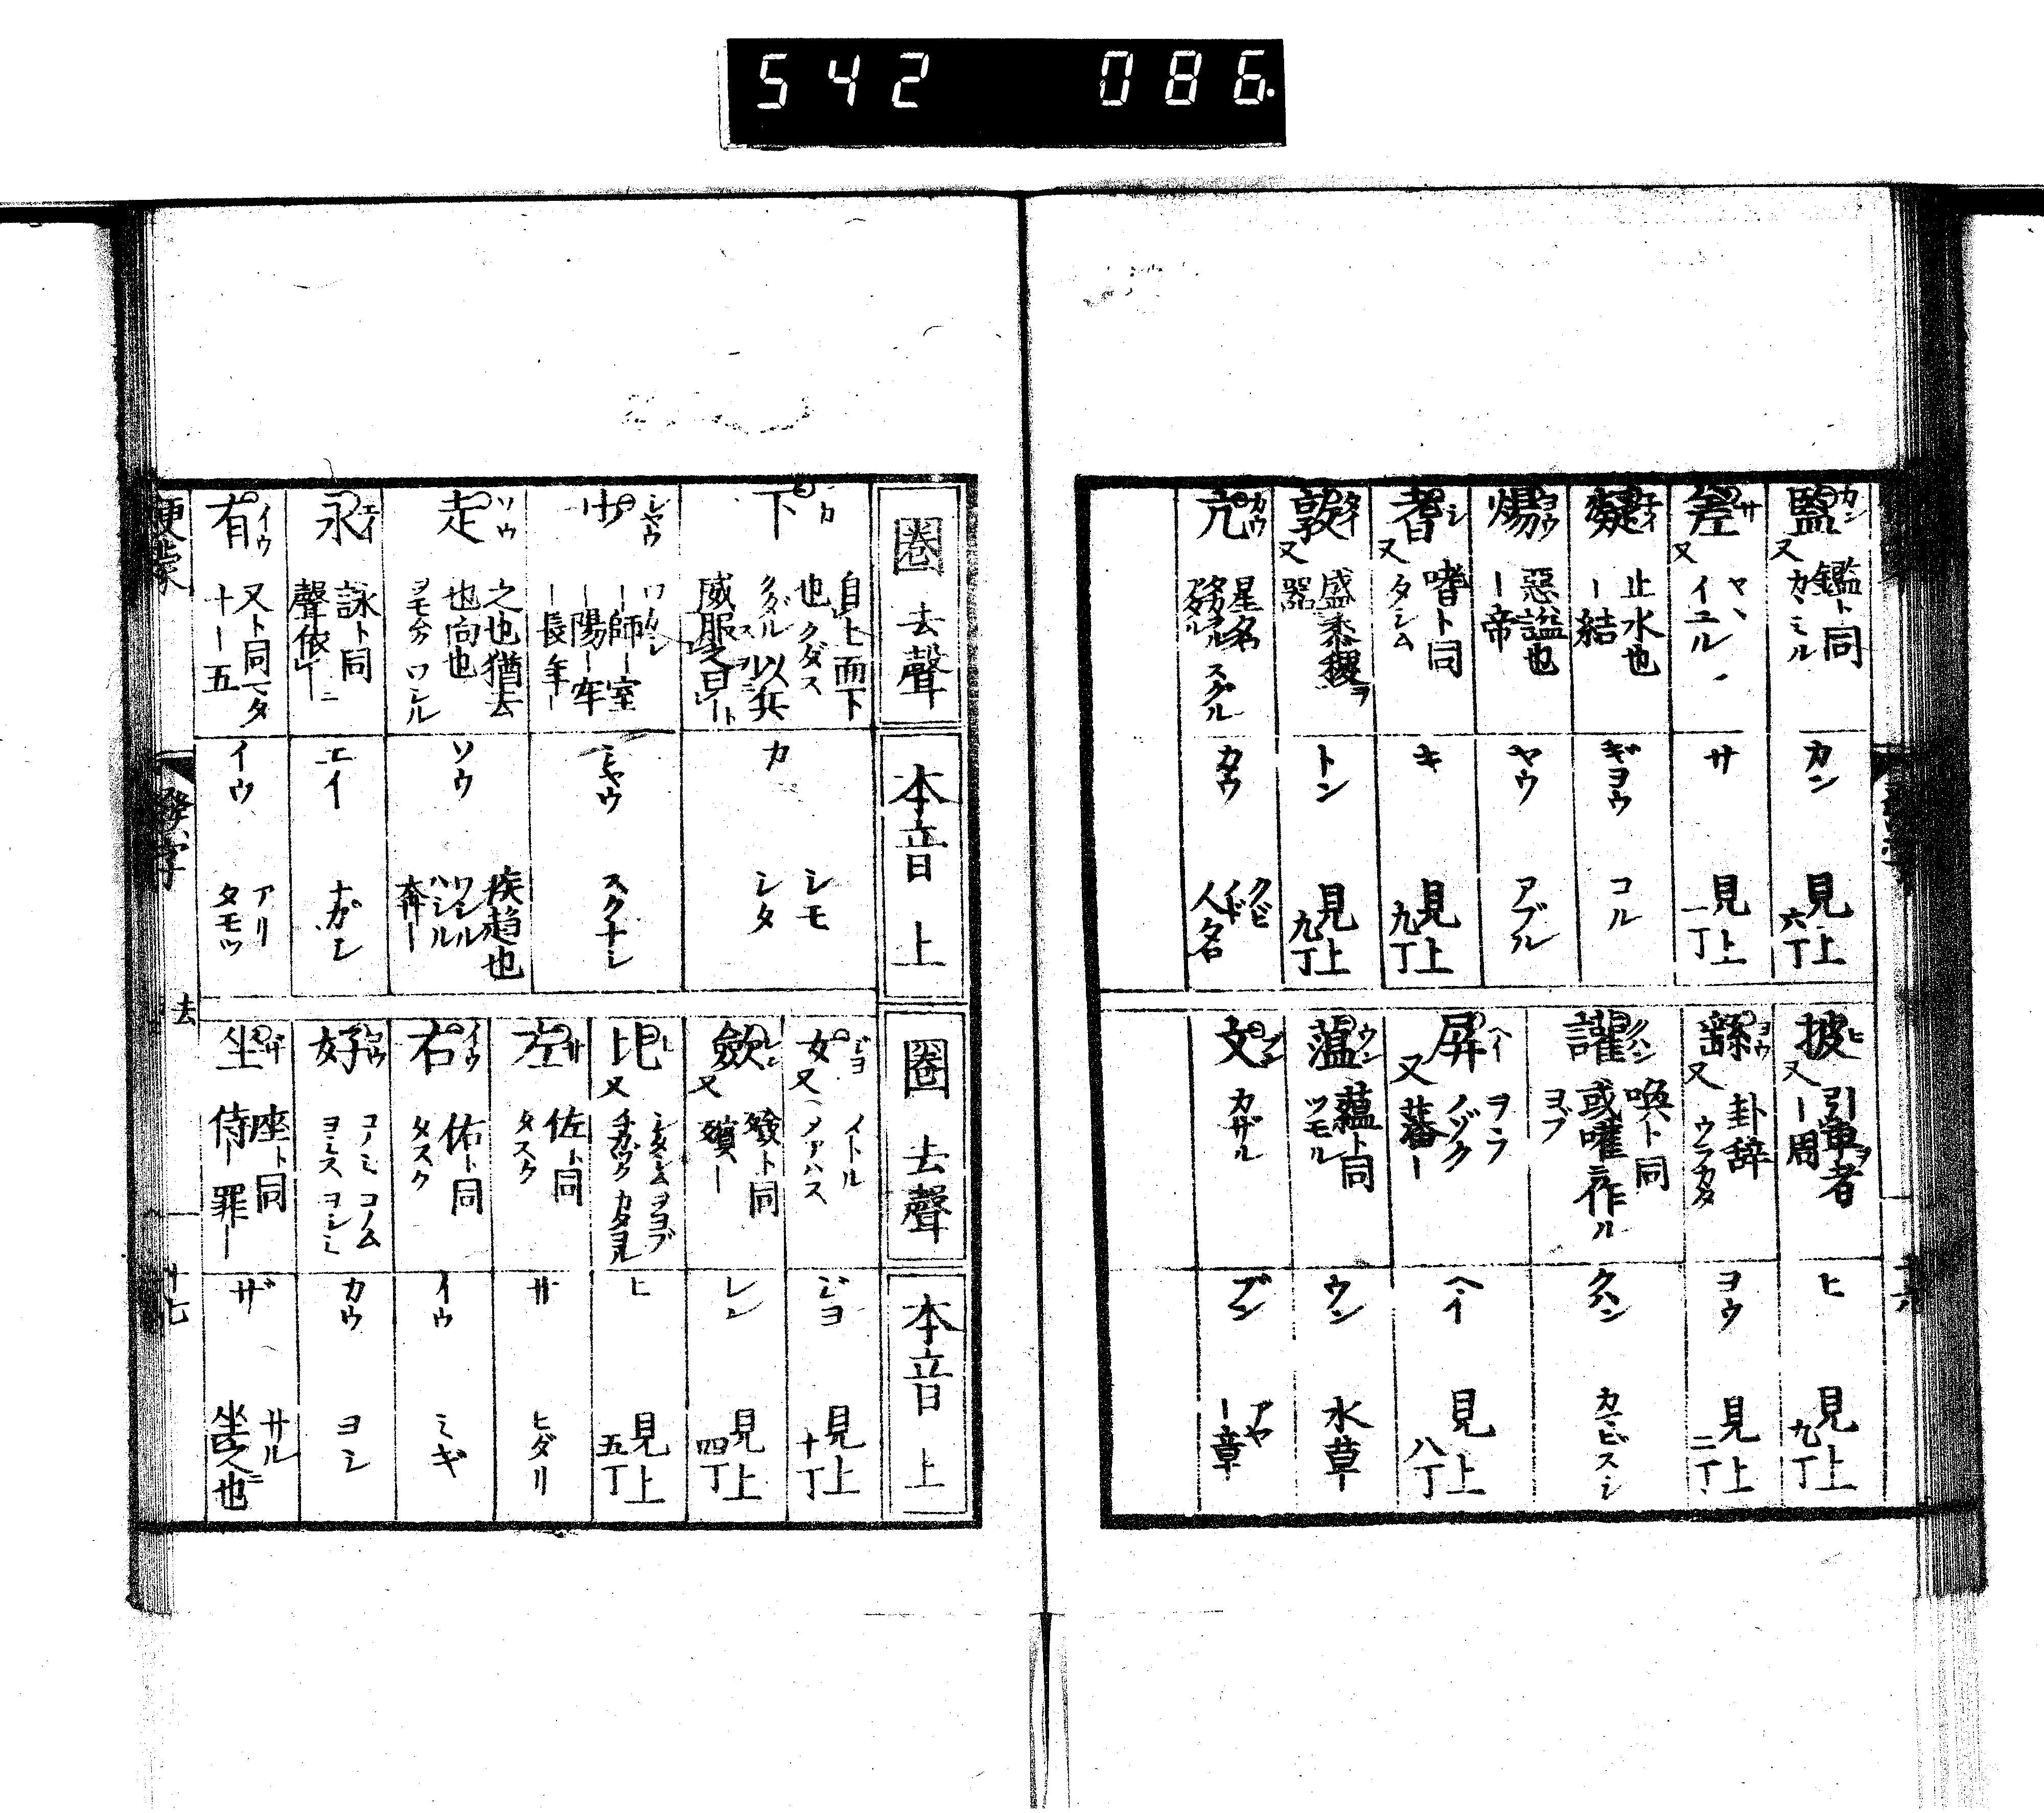 542 086.
監 カン 又 鑑ト同 カヽミル カン 見上六丁
差 サ 又 ヤヽ イユル サ 見上一丁
凝 止水也 ー結 ギヨウ コル
煬 ヨウ 惡謚也 ー帝 ヤウ アブル
耆 シ 又 嗜ト同 タシム キ 見上九丁
敦 タイ 又 盛黍稷ヲ器 トン 見上九丁
亢 カウ 星名 スグル カウ クビ ノド 人名
披 ヒ 又 引軍ヲ者 ー周 ヒ 見上九丁
繇 ヨウ 又 卦辞 ウラカタ ヨウ 見上二丁
讙 クハン 喚ト同 或嚾ニ作ル ヨブ クハン カマビスシ
屏 ヘイ 又 ヲヲフ ノゾク 蕃ー ヘイ 見上八丁
薀 ウン 蘊ト同 ツモル ウン 水草
文 ブン カザル ブン アヤ ー章
圈 去聲 本音 上
下 カ 自上而下也 クダス クダル 以兵威服之曰ート カ シモ シタ
少 シヤウ ワカシ ー師ー室 ー陽ー牢 ー長年ー シヤウ スクナシ
走 ソウ 之也猶去也向也 ヲモムク ワシル ソウ 疾趨也 ワシル ハシル 奔ー
永 エイ 詠ト同 聲依ーニ エイ ナガシ
有 イウ 又ト同 十ー五 イウ アリ タモツ
圈 去聲 本音 上
女 ジヨ 又 イトル メアハス ジヨ 見上十丁
歛 レン 又 殮ト同 殯ー レン 見上四丁
比 ヒ 又 シタシム ヲヨブ チカヅク カタヨル ヒ 見上五丁
左 サ 佐ト同 タスク サ ヒダリ
右 イウ 佑ト同 タスク イウ ミギ
好 カウ コノミ コノム ヨミス ヨシミ カウ ヨシ
坐 ザ 座ト同 侍ー罪ー ザ サル 坐之也
便蒙 發字 去 十七